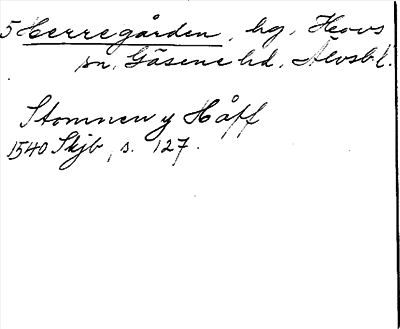 5 Herregården, hg, Hovs
sn, Gäsene hd, Älvsb. l.
Stommen y Håff
1540 Skjb, s. 127.